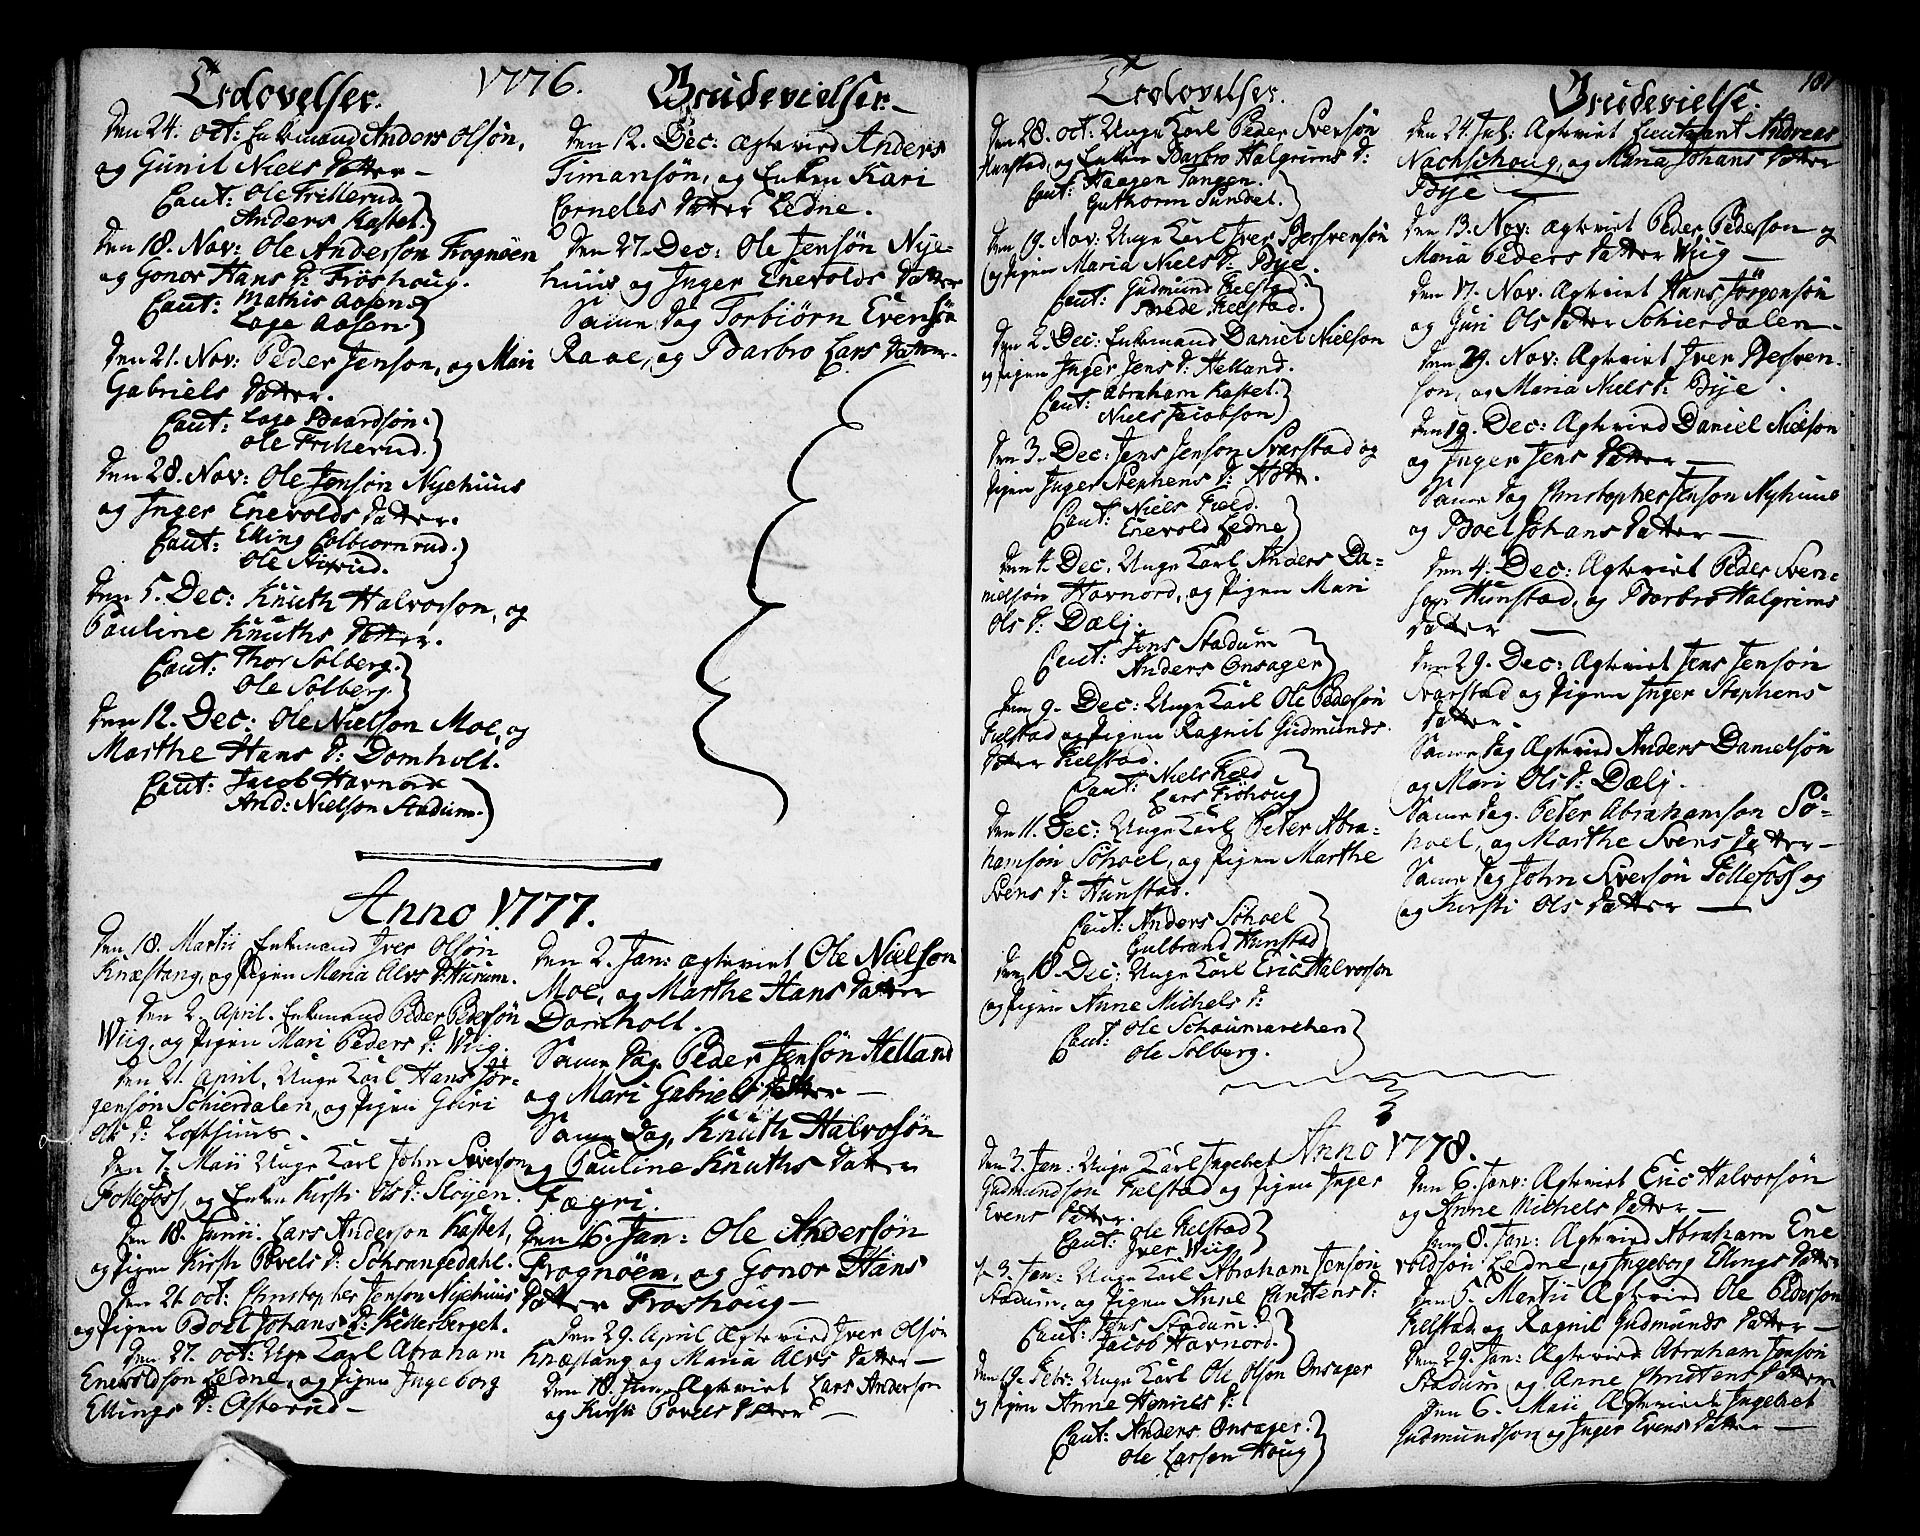 Trolovelser.
1776.
Brudevielser.
Den 24. Oct: Enkemand Anders Olsøn,
og Gunil Niels Datter —
Caut: Ole Frillerud
Anders Kastet.
Den 18. Nov: Ole Andersøn Frognøen
og Gonor Hans D: Fröshoug.
Caut: Mathis Aasen
Lage Aasen.
Den 21. Nov: Peder Jenson, og Mari
Gabriels Datter.
Caut: Lage Baardsøn.
Ole Frillerud.
Den 28. Nov: Ole Jensøn Nyehuus
og Inger Enevolds Datter.
Caut: Elling Colbiornrud.
Ole
Den 5. Dec: Knuth Halvorson, og
Pauline Knuths Datter.
Caut: Thor Solberg.
Ole Solberg.
Den 12. Dec: Ole Nielson Moe, og
Marthe Hans D: Domholt.
Caut: Jacob Havnord
And: Nielson Stadum.
Den 12. Dec: Ægtevied Anders
Timansøn, og Enken Kari
Corneles Datter Ledne.
Den 27. Dec: Ole Jensøn Nye-
huus og Inger Enevolds Datter
Samme Dag Torbiørn Evensøn
Raae, og Barbro Lars Datter.
Anno 1777.
Den 18. Martii Enkemand Iver Olsøn
Knæstang, og Pigen Maria Alvs D: Hurum.
Den 2. April. Enkemand Peder Pedersøn
Wiig, og Pigen Mari Peders D: Wiig.
Den 21. April, Unge Karl Hans Jör-
gensøn Schierdalen, og Pigen Guri
Ols D: Lofthuus.
Den 7. Maii Unge Karl John Siverson
Follefoss, og Enken Kirsti Ols D: Sloyen.
Den 18. Junii. Lars Anderson Kastet,
og Pigen Kirsti Povels D: Schrangedahl.
Den 21 Oct: Christopher Jenson Nyehuus
og Pigen Boel Johans D: Kittelsberget.
Den 27. Oct: Unge Karl Abraham
Enevoldson Ledne, og Pigen Ingeborg
Ellings D: Asterud —
Den 2. Jan: Ægteviet Ole Nielson
Moe, og Marthe Hans Datter
Domholt.
Samme Dag. Peder Jensøn Helland
og Mari Gabriels Datter —
Samme Dag, Knuth Halvorsøn
og Pauline Knuths Datter
Fægri.
Den 16. Jan: Ole Andersøn
Frognöen, og Gonor Hans
Datter Froshoug —
Den 29. April Ægteviед Iver Olsøn
Knæstang og Maria Alvs Datter —
Den 18. Jun: Ægteviet Lars Anderson
og Kirsti Povels Datter —
Trolovelser.
Brudevielse.
181
Den 28. Oct: Unge Karl Peder Svensøn
Hunstad, og Enken Barbro Halgrims D:
Caut: Haagen Tangen.
Guthorm Sundet.
Den 19. Nov: Unge Karl Iver Bersvensøn
og Pigen Maria Niels D: Bye.
Caut: Gudmund Fielstad
Brede Fielstad.
Den 2. Dec: Enkemand Daniel Nielson
og Pigen Inger Jens D: Helland.
Caut: Abraham Kastet.
Niels Jacobson
Den 3. Dec: Jens Jenson Svarstad og
Pigen Inger Stephens D:
Caut: Niels Field.
Enevold Ledne
Den 4. Dec. Unge Karl Anders Da-
nielsøn Havnord, og Pigen Mari
Ols D: Dælj.
Caut: Jens Stadum
Anders Onsager
Den 9. Dec: Unge Karl Ole Pedersøn
Fielstad og Pigen Ragnil Gudmunds
Datter Fielstad.
Caut: Niels Field
Lars Fröhoug
Den 11. Dec: Unge Karl Peter Abra-
hamsøn Söhoel, og Pigen Marthe
Svens D: Hunstad.
Caut: Anders Söhoel
Gulbrand Hunstad
Den 18. Dec: Unge Karl Eric Halvorson
og Pigen Anne Michels D:
Caut: Ole Schoumarchen
Ole Solberg.
Den 24. Jul: Ægteviet Lieutenant Andreas
Nachschoug, og Maria Johans Datter
Bye —
Den 13. Nov: Ægteviet Peder Pederson og
Maria Peders Datter Wiig —
Den 17. Nov. Ægteviet Hans Jörgensön
og Guri Ols Datter Schierdalen —
Den 29. Nov: Ægteviet Iver Bersven-
søn, og Maria Niels D: Bye.
Den 19. Dec: Ægtevied Daniel Nielson
og Inger Jens Datter —
Samme Dag Christopher Jenson Nyhuus
og Boel Johans Datter —
Den 4. Dec: Ægteviet Peder Sven-
søn Hunstad, og Barbro Halgrims
Datter —
Den 29. Dec: Ægteviet Jens Jensøn
Svarstad og Pigen Inger Stephens
Datter.
Samme Dag Ægtevied Anders Danielsøn
og Mari Ols D: Dælj.
Samme Dag. Peter Abrahamson Sö-
hoel, og Marthe Svens Datter —
Samme Dag John Siversøn Follefoss og
og Kirsti Ols Datter —
Anno 1778.
Den 3. Jan: Unge Karl Ingebret
Gudmundson Fielstad og Pigen Inger
Evens Datter.
Caut: Ole Fielstad
Iver Wiig
D. 3. Jan: Unge Karl Abraham Jenson
Stadum, og Pigen Anne Christens D:
Caut: Jens Stadum.
Jacob Havnord.
Den 19. Febr: Unge Karl Ole Olson Onsager
og Pigen Anne Henrics D:
Caut: Anders Onsager.
Ole Larsen Houg
Den 6. Janv: Ægteviet Eric Halvorsøn
og Anne Michels Datter —
Den 8. Jan: Ægtevied Abraham Ene
voldsøn Ledne, og Ingeborg Ellings Datter
Den 5. Martii Ægtevied Ole Pederson
Fielstad og Ragnil Gudmunds Datter —
Den 29. Jan: Ægtevied Abraham Jenson
Stadum og Anne Christens Datter
Den 6. Maii Ægteviede Ingebret
Gudmundson og Inger Evens Datter —